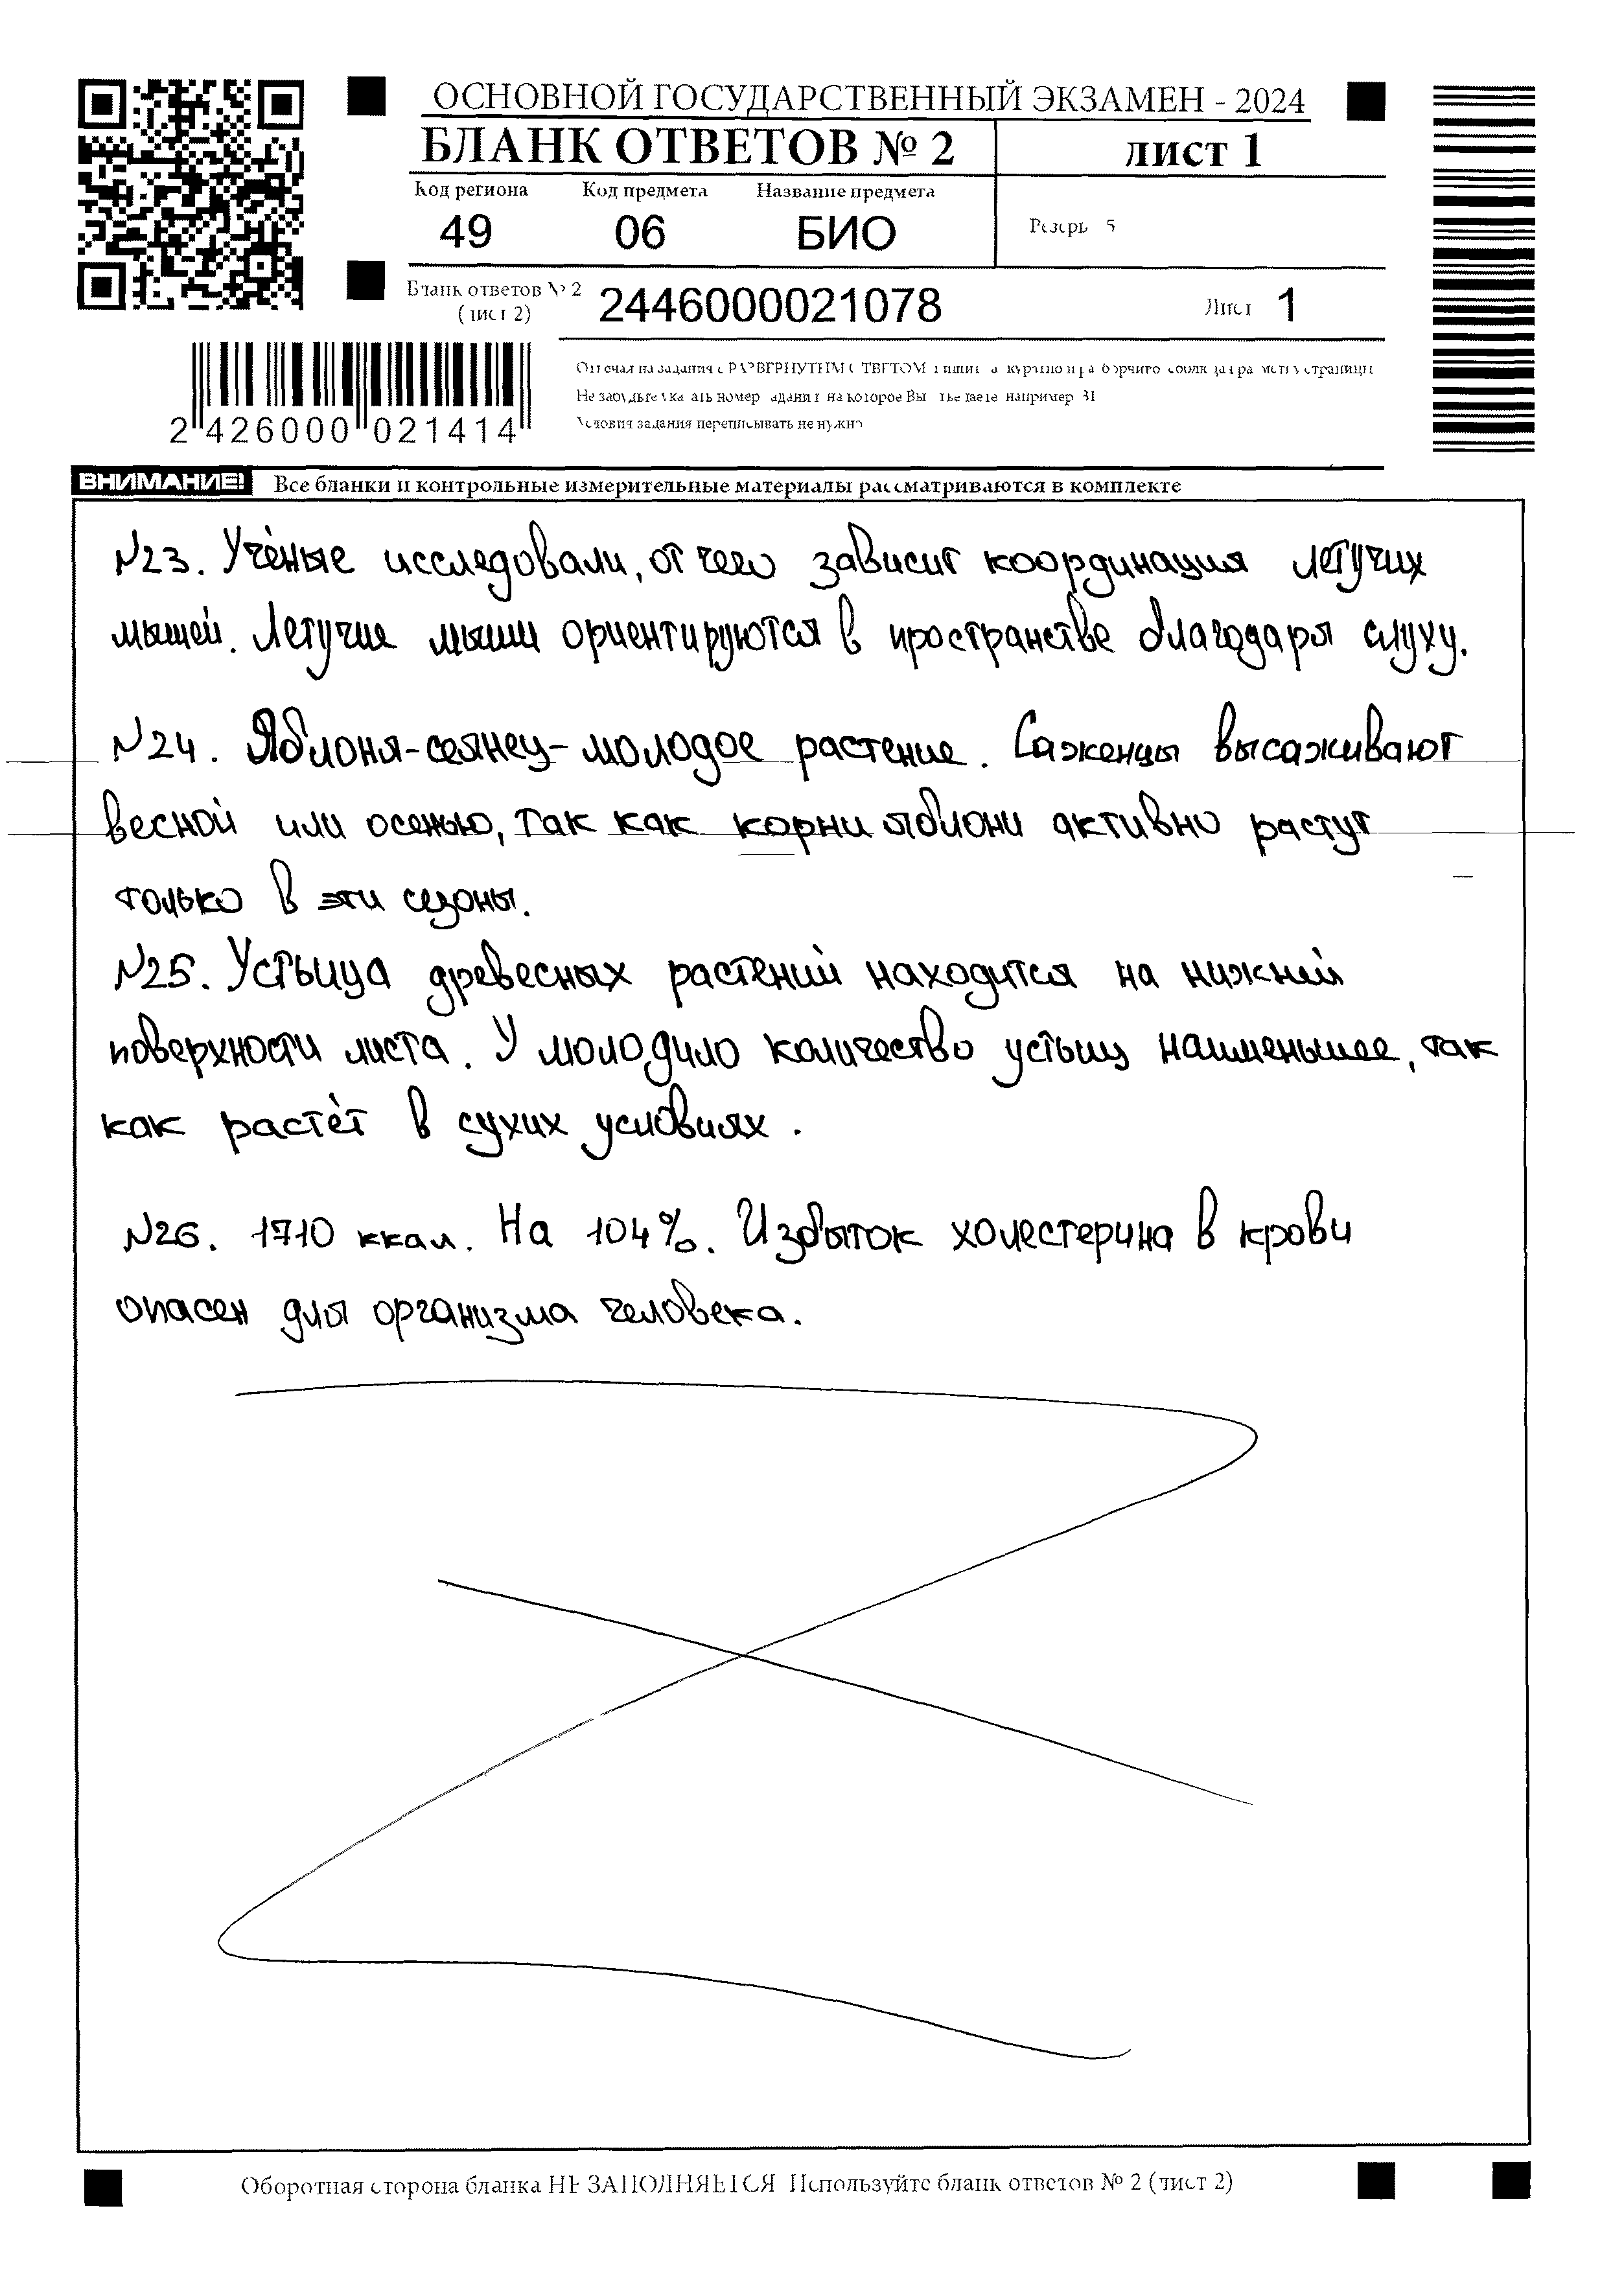 ОСНОВНОЙ ГОСУДАРСТВЕННЫЙ ЭКЗАМЕН - 2024
БЛАНК ОТВЕТОВ № 2
лист 1
Код региона
Код предмета
Название предмета
49
06
БИО
Резерв 5
Бланк ответов № 2
(лист 2)
2446000021078
Лист 1
2 426000 021414
Не забудьте указать номер задания на которое Вы отвечаете например 31
Условия задания переписывать не нужно
ВНИМАНИЕ! Все бланки и контрольные измерительные материалы рассматриваются в комплекте
№23. Учёные исследовали, от чего зависит координация летучих
мышей. Летучие мыши ориентируются в пространстве благодаря слуху.
№24. Яблоня-сеянец-молодое растение. Саженцы высаживают
весной или осенью, так как корни яблони активно растут
только в эти сезоны.
№25. Устьица древесных растений находится на нижней
поверхности листа. У молодило количество устьиц наименьшее, так
как растёт в сухих условиях.
№26. 1710 ккал. На 104%. Избыток холестерина в крови
опасен для организма человека.
Оборотная сторона бланка НЕ ЗАПОЛНЯЕТСЯ Используйте бланк ответов № 2 (лист 2)